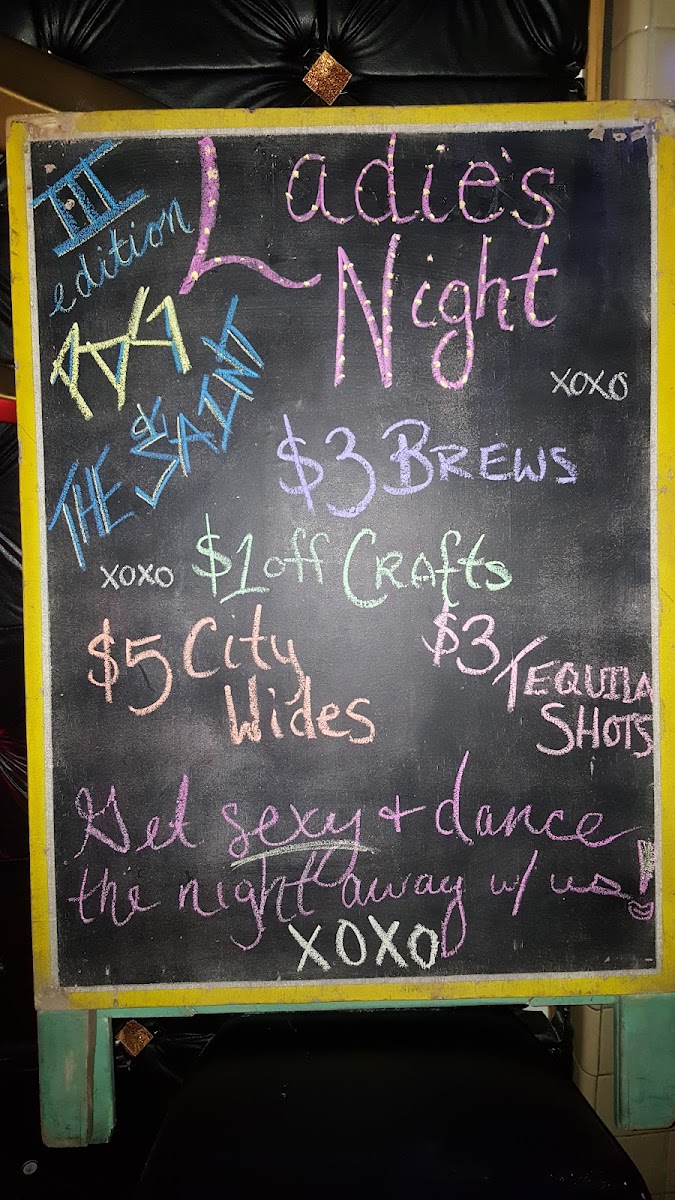 III
edition
Ladie's
Night
xoxo
THE SAINT
$3 BREWS
xoxo $1 off CRAfts
$5 City
Wides
$3 TEQUILA
SHOTS
Get sexy + dance
the night away w/ us!
XOXO